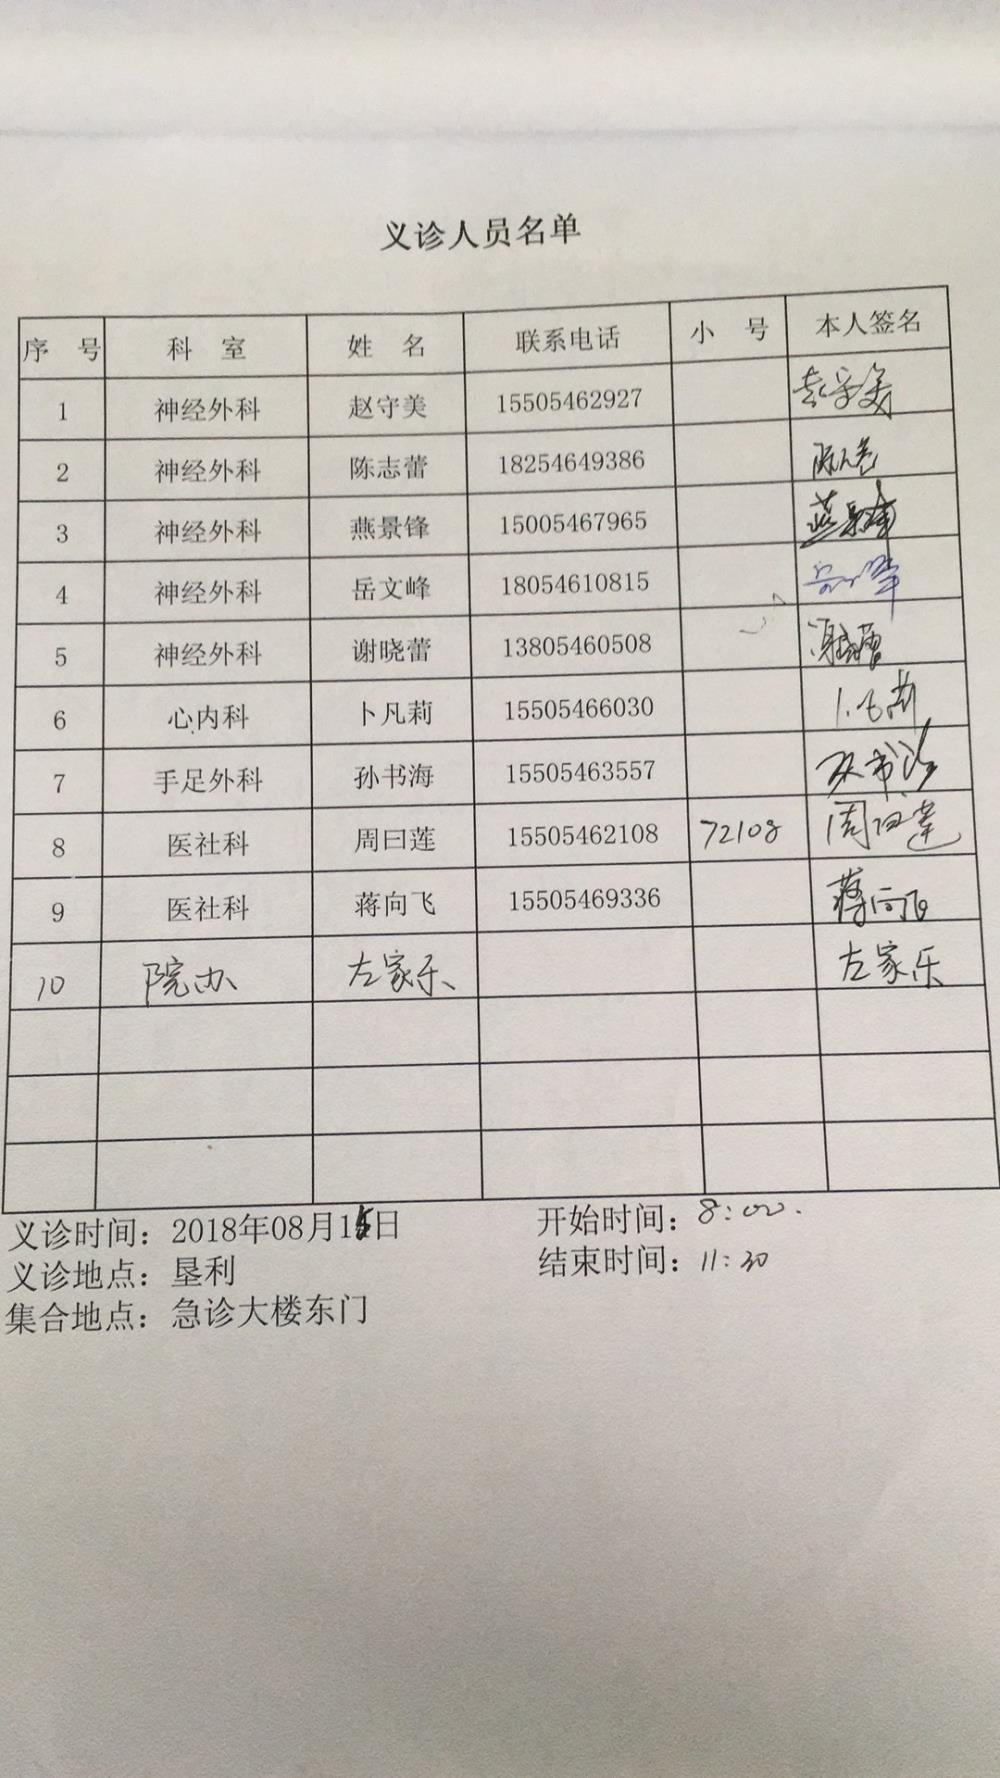 义诊人员名单
序 号 科 室 姓 名 联系电话 小 号 本人签名
1 神经外科 赵守美 15505462927
2 神经外科 陈志蕾 18254649386
3 神经外科 燕景锋 15005467965
4 神经外科 岳文峰 18054610815
5 神经外科 谢晓蕾 13805460508
6 心内科 卜凡莉 15505466030
7 手足外科 孙书海 15505463557 孙书海
8 医社科 周曰莲 15505462108 72108 周曰莲
9 医社科 蒋向飞 15505469336 蒋向飞
10 院办 左家乐 左家乐
义诊时间：2018年08月15日 开始时间：8:00.
义诊地点：垦利 结束时间：11:30
集合地点：急诊大楼东门